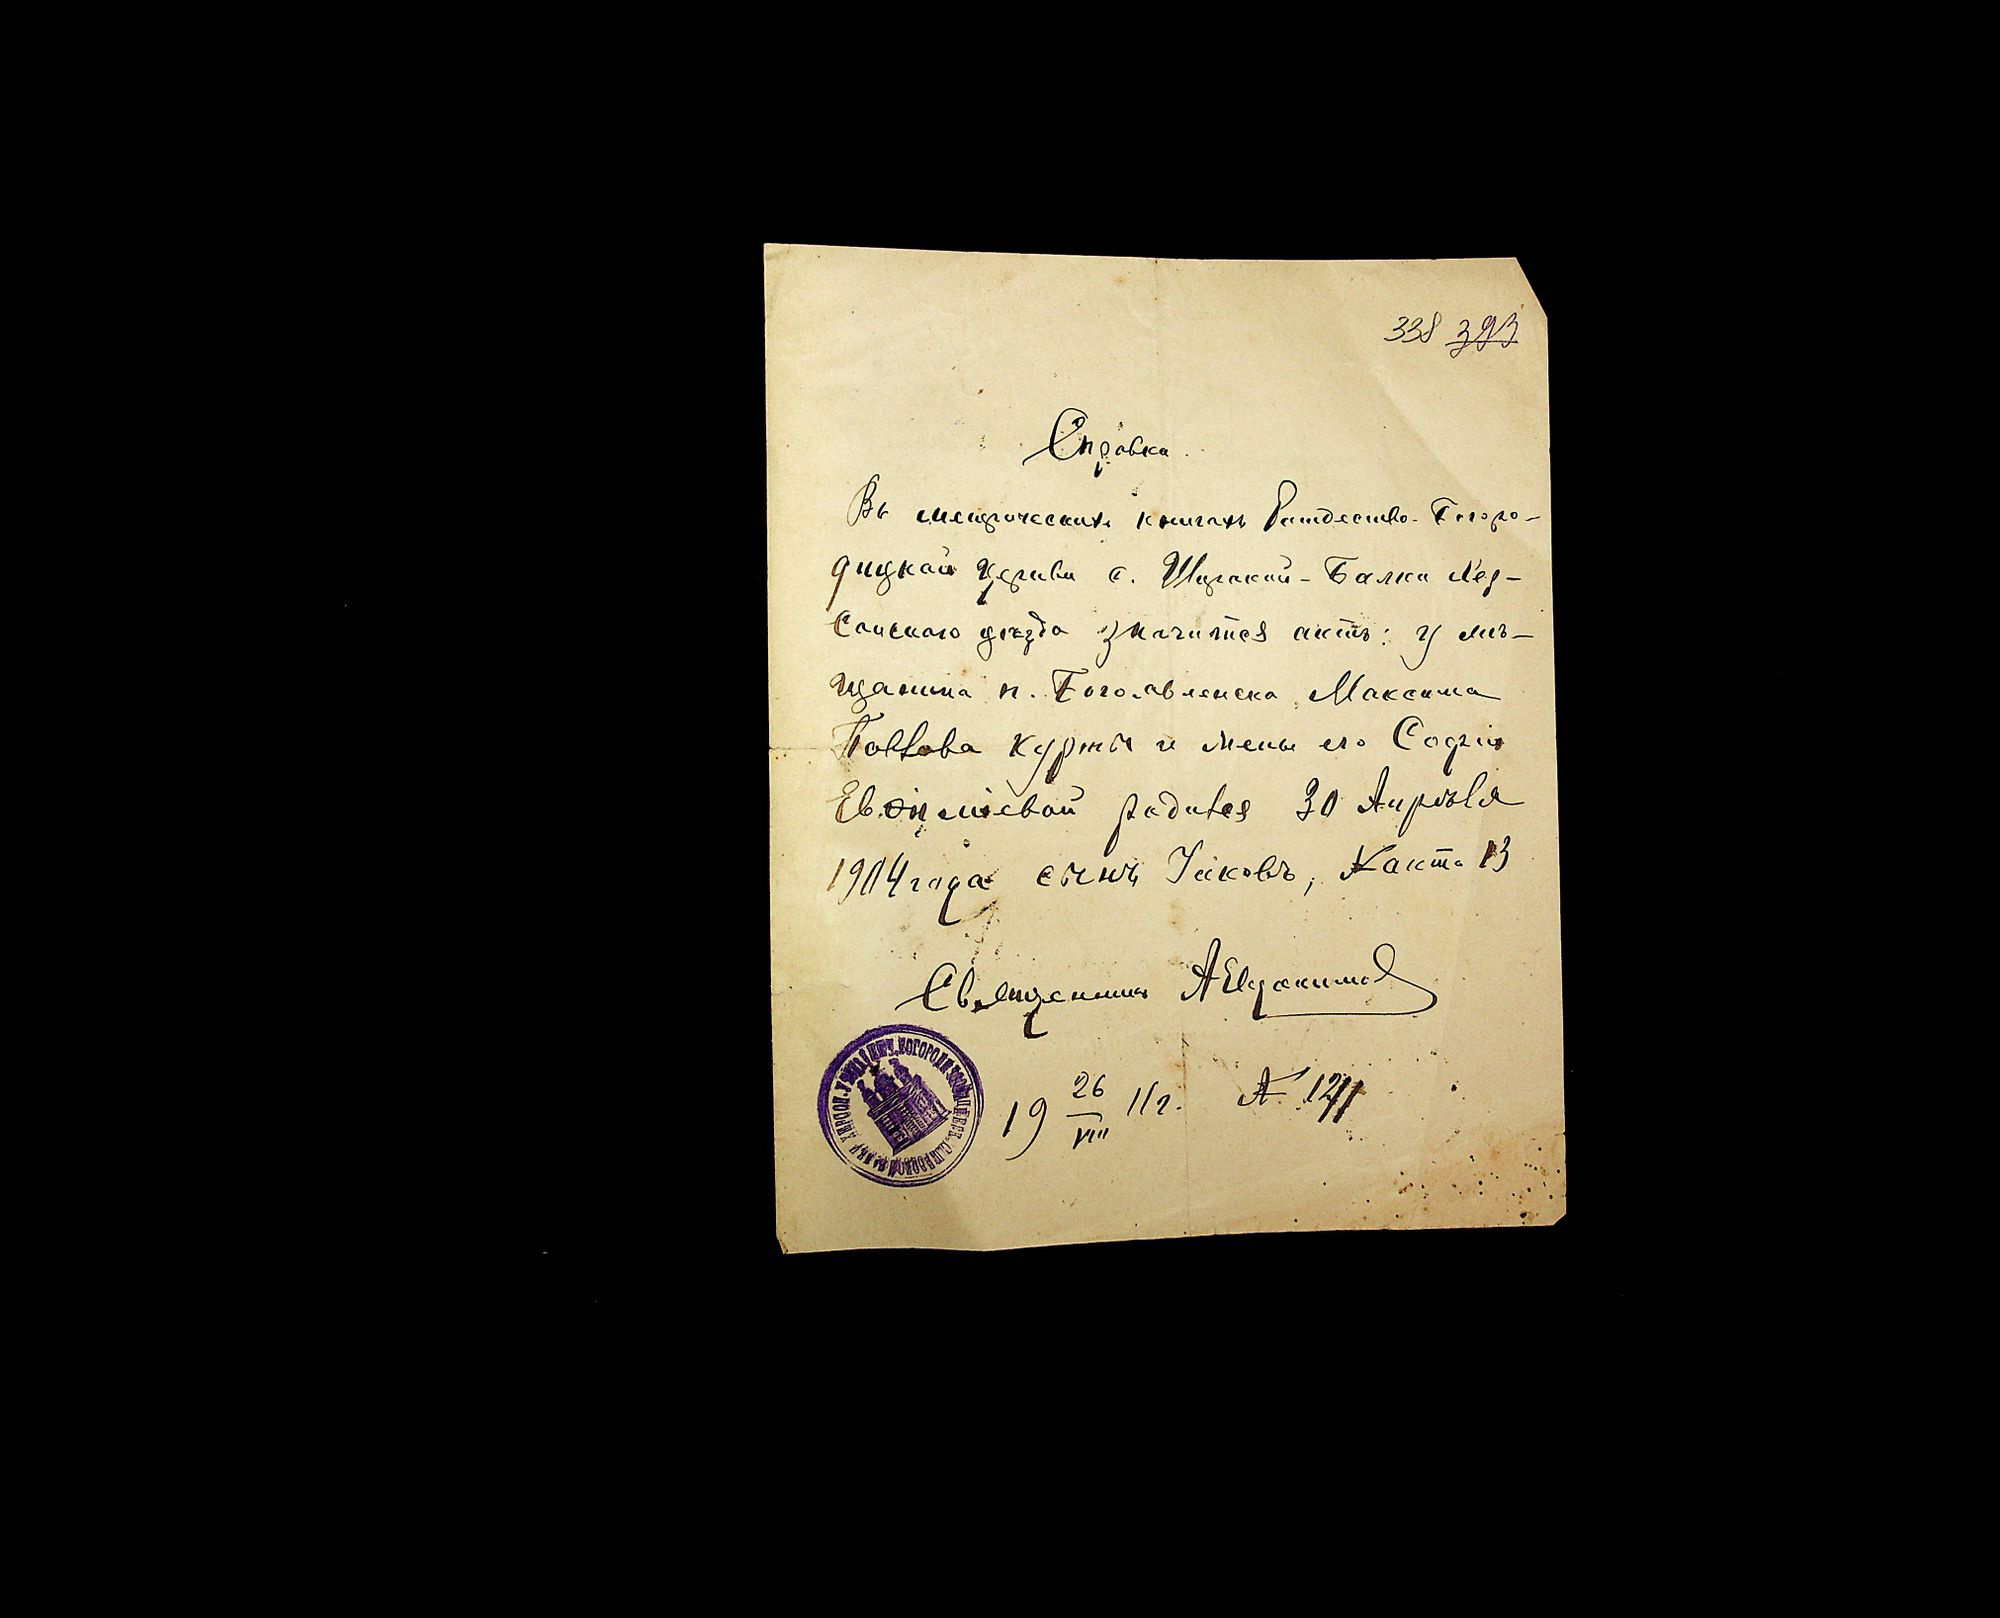 338 393
Справка.
Въ метрическихъ книгахъ Рождество-Богоро-
дицкой Церкви с. Широкой-Балки Хер-
сонскаго уѣзда значится актъ: у мѣ-
щанина п. Богоявленска Максима
Курты и жены его Софіи
Евфиміевой родился 30 Апрѣля
1904 года сынъ Іаковъ, № акта 13
Священникъ А Евдокимов
19 26/VIII 11 г. № 1211